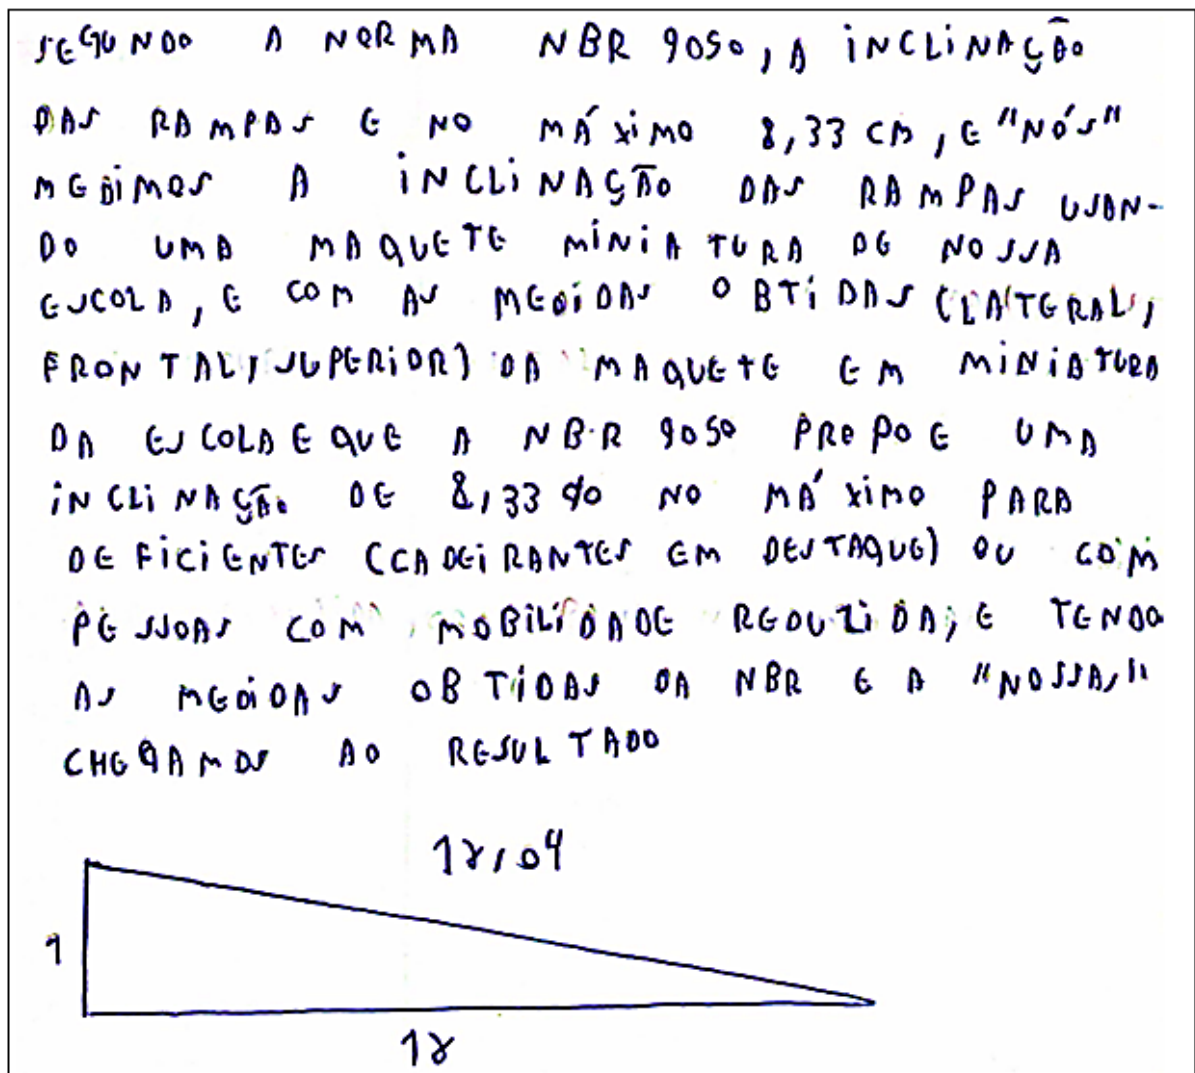 SEGUNDO A NORMA NBR 9050, A INCLINAÇÃO
DAS RAMPAS E NO MÁXIMO 8,33 CM, E "NÓS"
MEDIMOS A INCLINAÇÃO DAS RAMPAS USAN-
DO UMA MAQUETE MINIATURA DE NOSSA
ESCOLA, E COM AS MEDIDAS OBTIDAS (LATERAL,
FRONTAL, SUPERIOR) DA MAQUETE EM MINIATURA
DA ESCOLA E QUE A NBR 9050 PROPOE UMA
INCLINAÇÃO DE 8,33% NO MÁXIMO PARA
DEFICIENTES (CADEIRANTES EM DESTAQUE) OU COM
PESSOAS COM MOBILIDADE REDUZIDA, E TENDO
AS MEDIDAS OBTIDAS DA NBR E A "NOSSA,"
CHEGAMOS AO RESULTADO
12,04
1
12